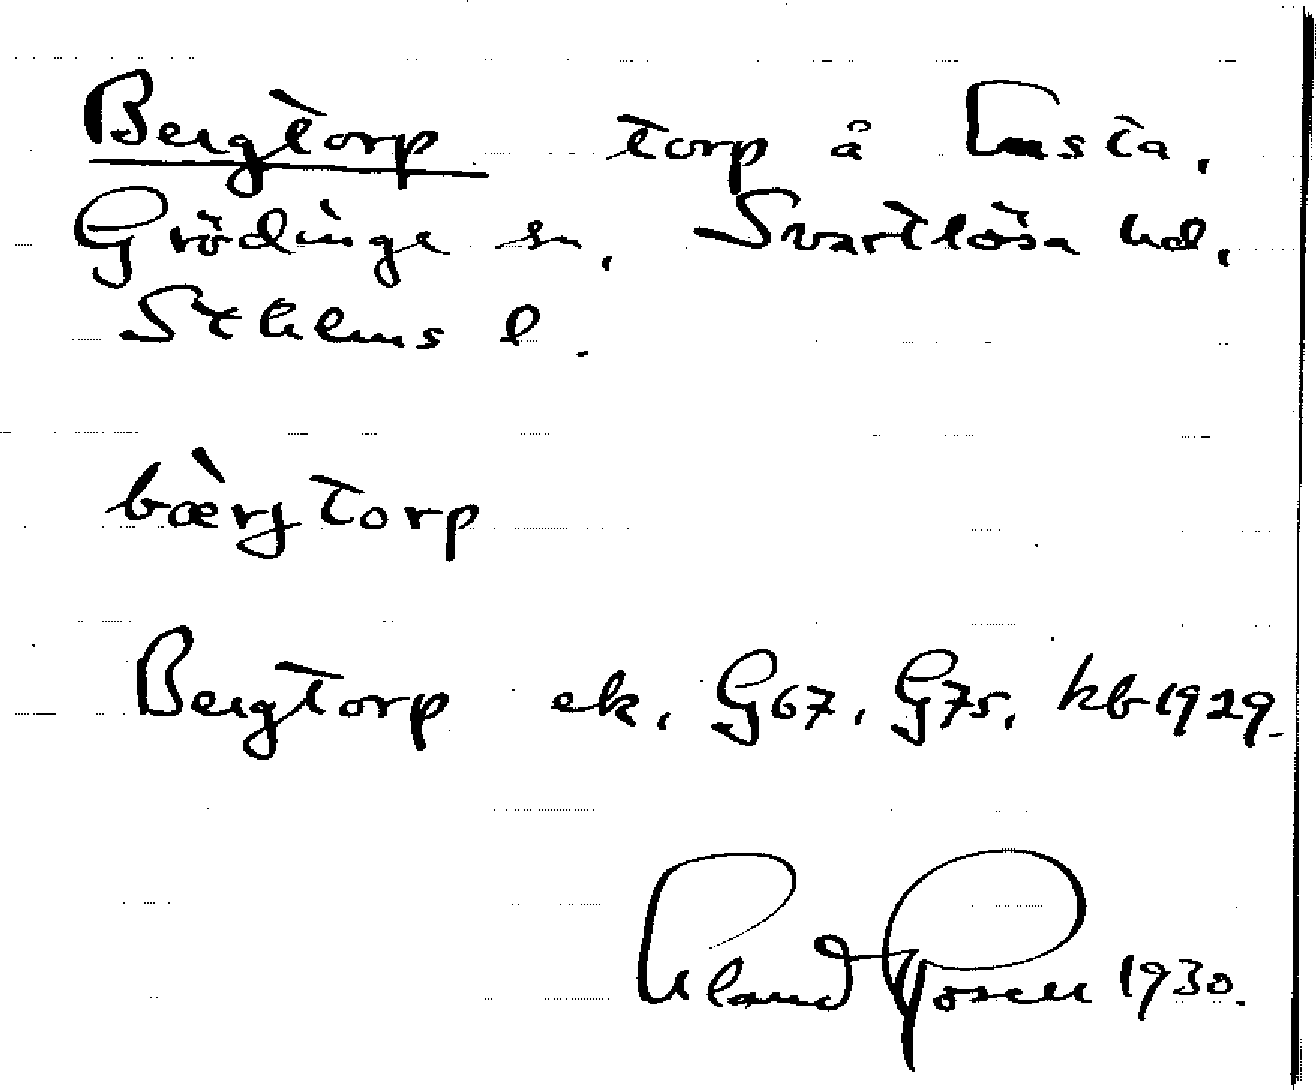 Bergtorp torp å
Grödinge sn, Svartlösa hd,
Sthlms l.
bæ̀rjtorp
Bergtorp ek, G67, G75, kb 1929.
Rosell 1930.